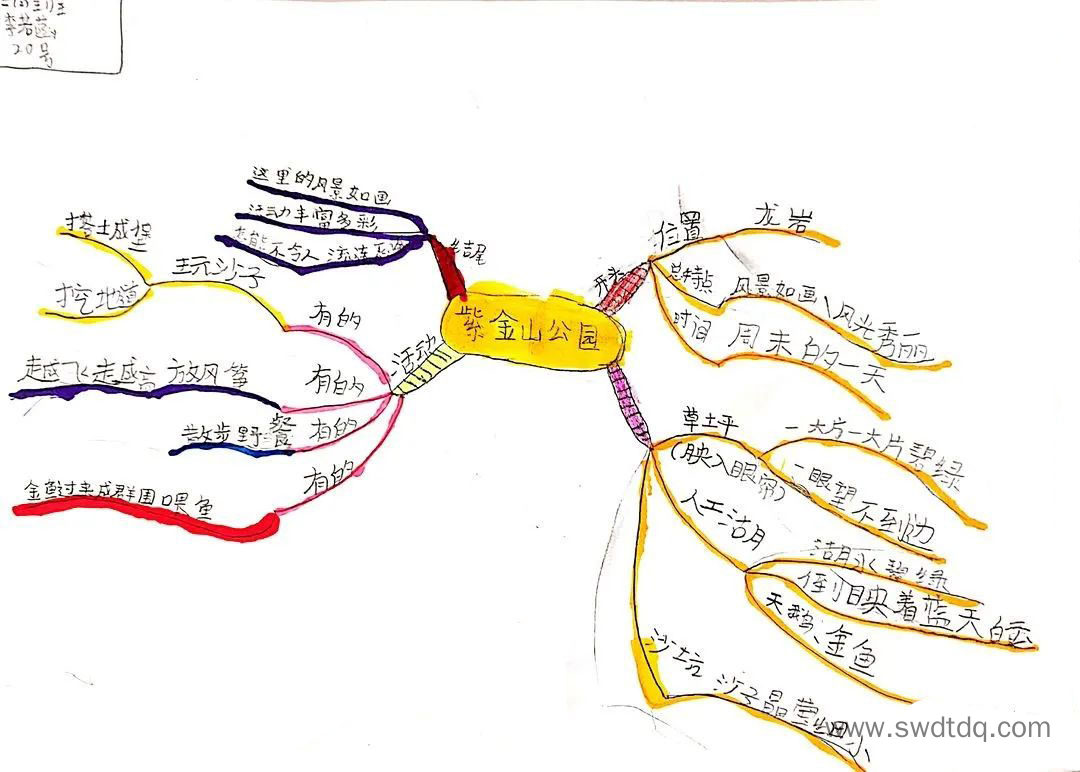 20号
紫金山公园
开头
位置
龙岩
总特点
风景如画、风光秀丽
时间
周末的一天
草坪
(映入眼帘)
一大片一大片碧绿
一眼望不到边
人工湖
湖水碧绿
倒映着蓝天白云
天鹅、金鱼
沙坑
沙子晶莹细小
活动
有的
玩沙子
搭城堡
挖地道
有的
放风筝
越飞越高
有的
散步野餐
有的
喂鱼
金鱼过来成群围
结尾
这里的风景如画
活动丰富多彩
不令人流连忘返
www.swdtdq.com